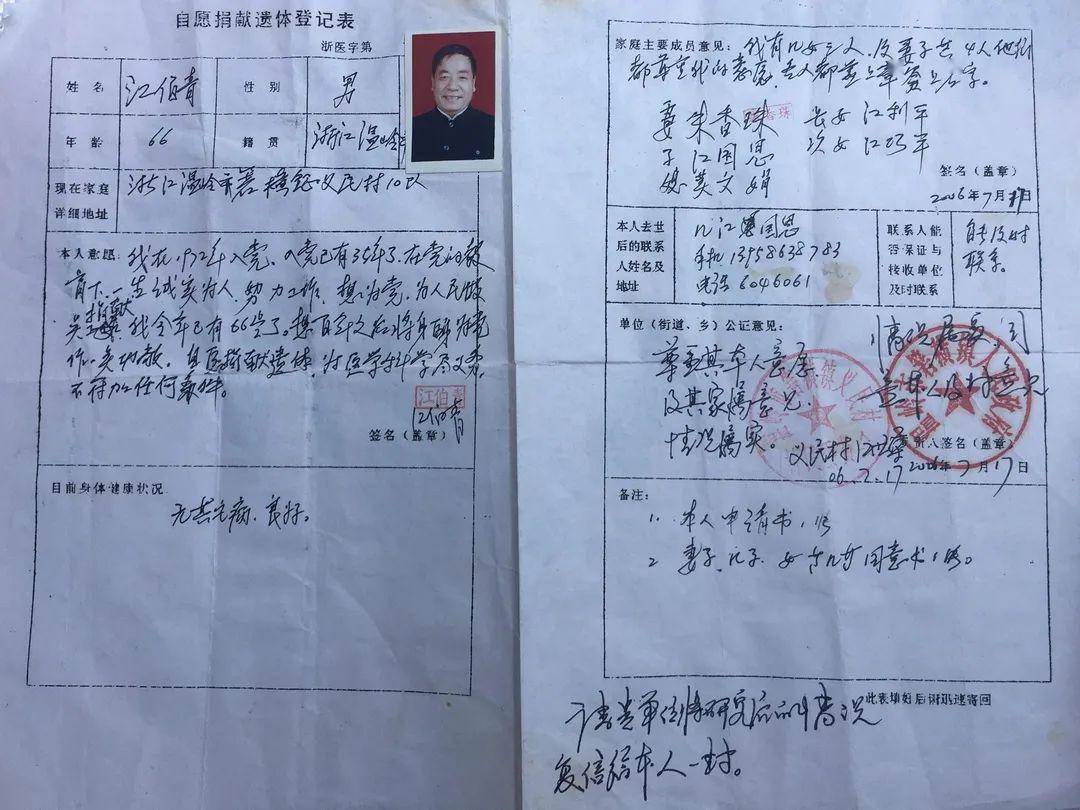 自愿捐献遗体登记表
浙医字第
姓名 江伯青 性别 男
年龄 66 籍贯 浙江温岭市
现在家庭详细地址 浙江温岭市箬横镇义民村10队
本人意愿：我在1972年入党、入党已有35年了.在党的教
育下.一生诚实为人.努力工作.想为党.为人民做
贡献 我今年已有66岁了.想百年之后将身躯为党
作一贡献.自愿捐献遗体.为医学科学
不符加任何条件。
江伯青
江伯青
签名（盖章）
目前身体健康状况
无其它病.良好。
家庭主要成员意见：我有儿女三人.及妻子共4人他们
都尊重我的意愿.
妻 朱香珠 长女 江利平
子 江国恩 次女 江巧平
媳 英文娟
签名（盖章）
2006年7月17日
本人去世后的联系人姓名及地址
儿 江国恩
手机 13958638783
电话 6046061
联系人能否保证与接收单位及时联系
能及时联系。
单位（街道、乡）公证意见：
尊重其本人意愿
及其家属意见
情况属实。
情况属实，同
意本人及村意见
义民村
06.7.17
签名（盖章）
2006年7月17日
备注：
1. 本人申请书1份
2 妻子.儿子.女 同意书1份。
此表填好后请迅速寄回
请贵单位将研究后的情况
复信给本人一封。